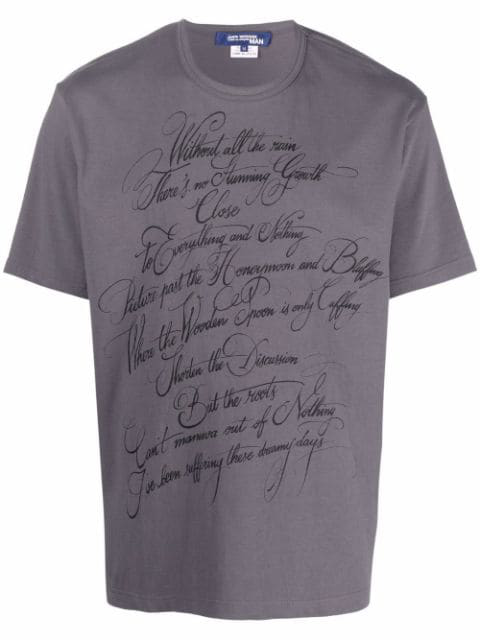 JUNYA WATANABE
MAN
M
Without all the rain
There's no Stunning Growth
Close
To Everything and Nothing
Picture past the Honeymoon and Bluffing
Where the Wooden Spoon is only Cuffing
Shorten the Discussion
But the roots
Can't manuva out of Nothing
I've been suffering these dreamy days